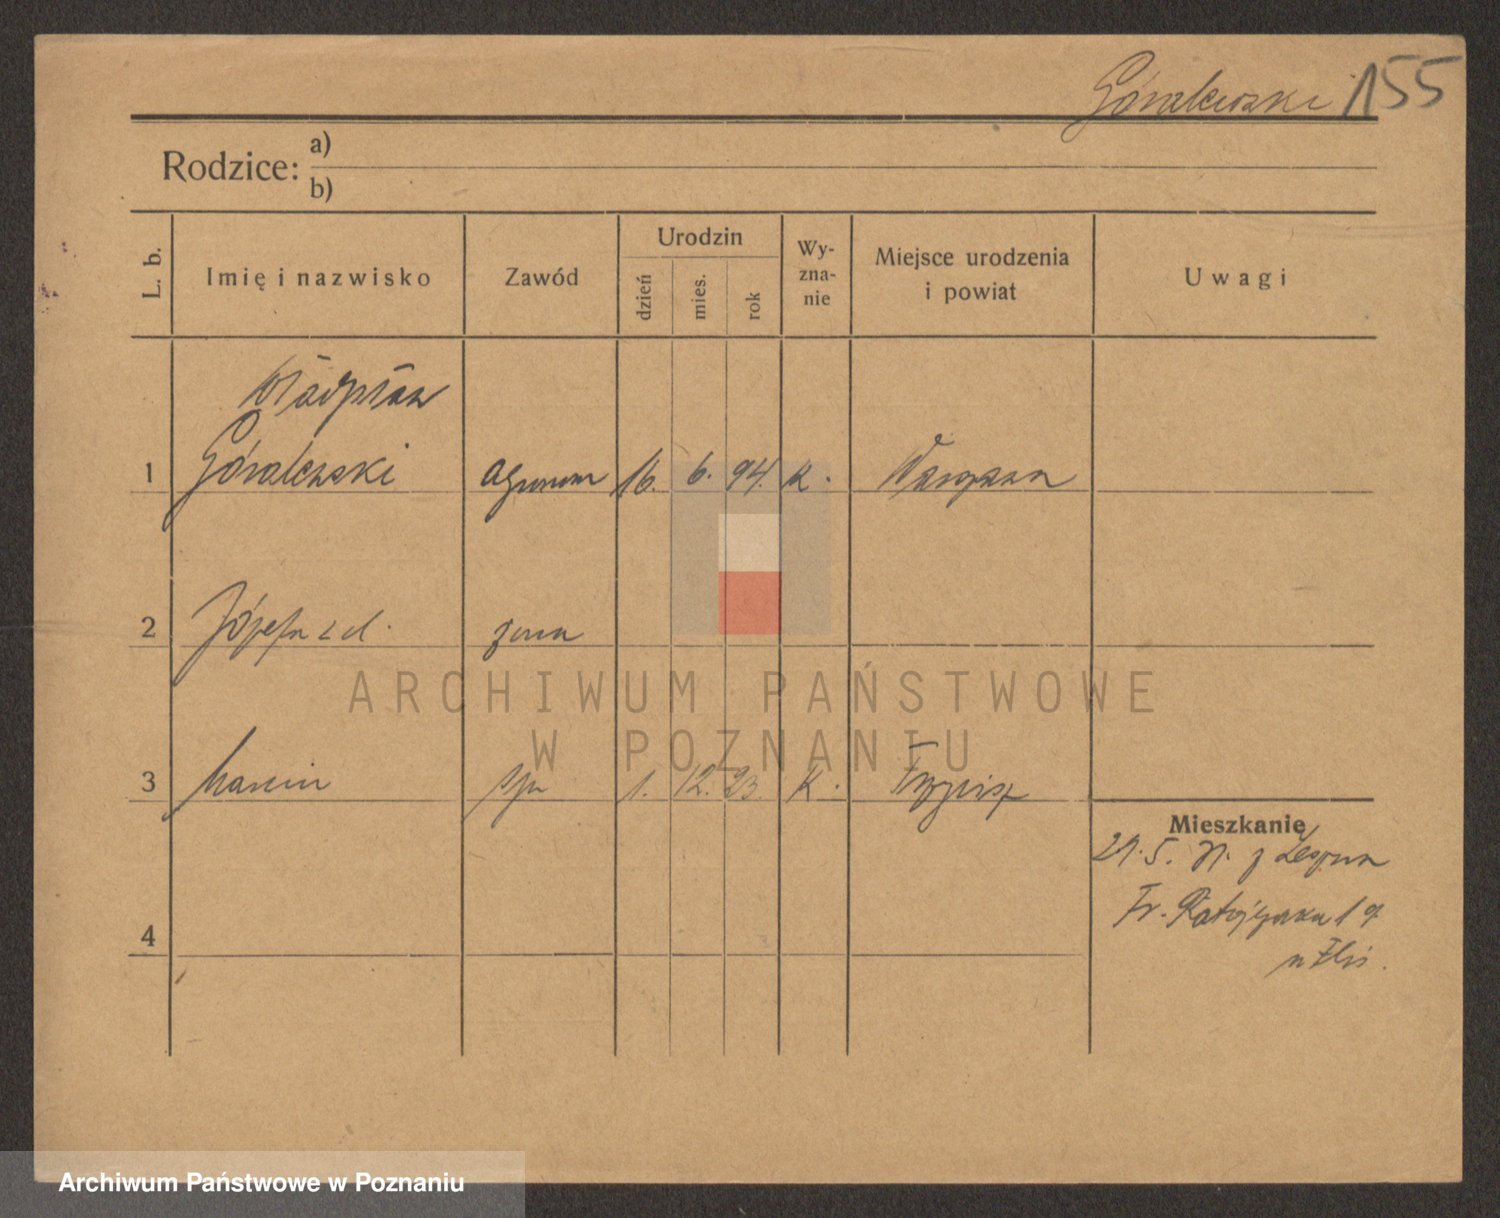 Góralewski 155
Rodzice: a)
b)
L. b.
Imię i nazwisko
Zawód
Urodzin
dzień
mies.
rok
Wy-
zna-
nie
Miejsce urodzenia
i powiat
Uwagi
Władysław
1 Góralewski agronom 16. 6. 94. k. Warszawa
2 Józefa z d. żona
3 Marcin syn 1. 12. 23 k.
Mieszkanie
21. 5. z
Fr. Ratajczaka
4
ARCHIWUM PAŃSTWOWE
W POZNANIU
Archiwum Państwowe w Poznaniu